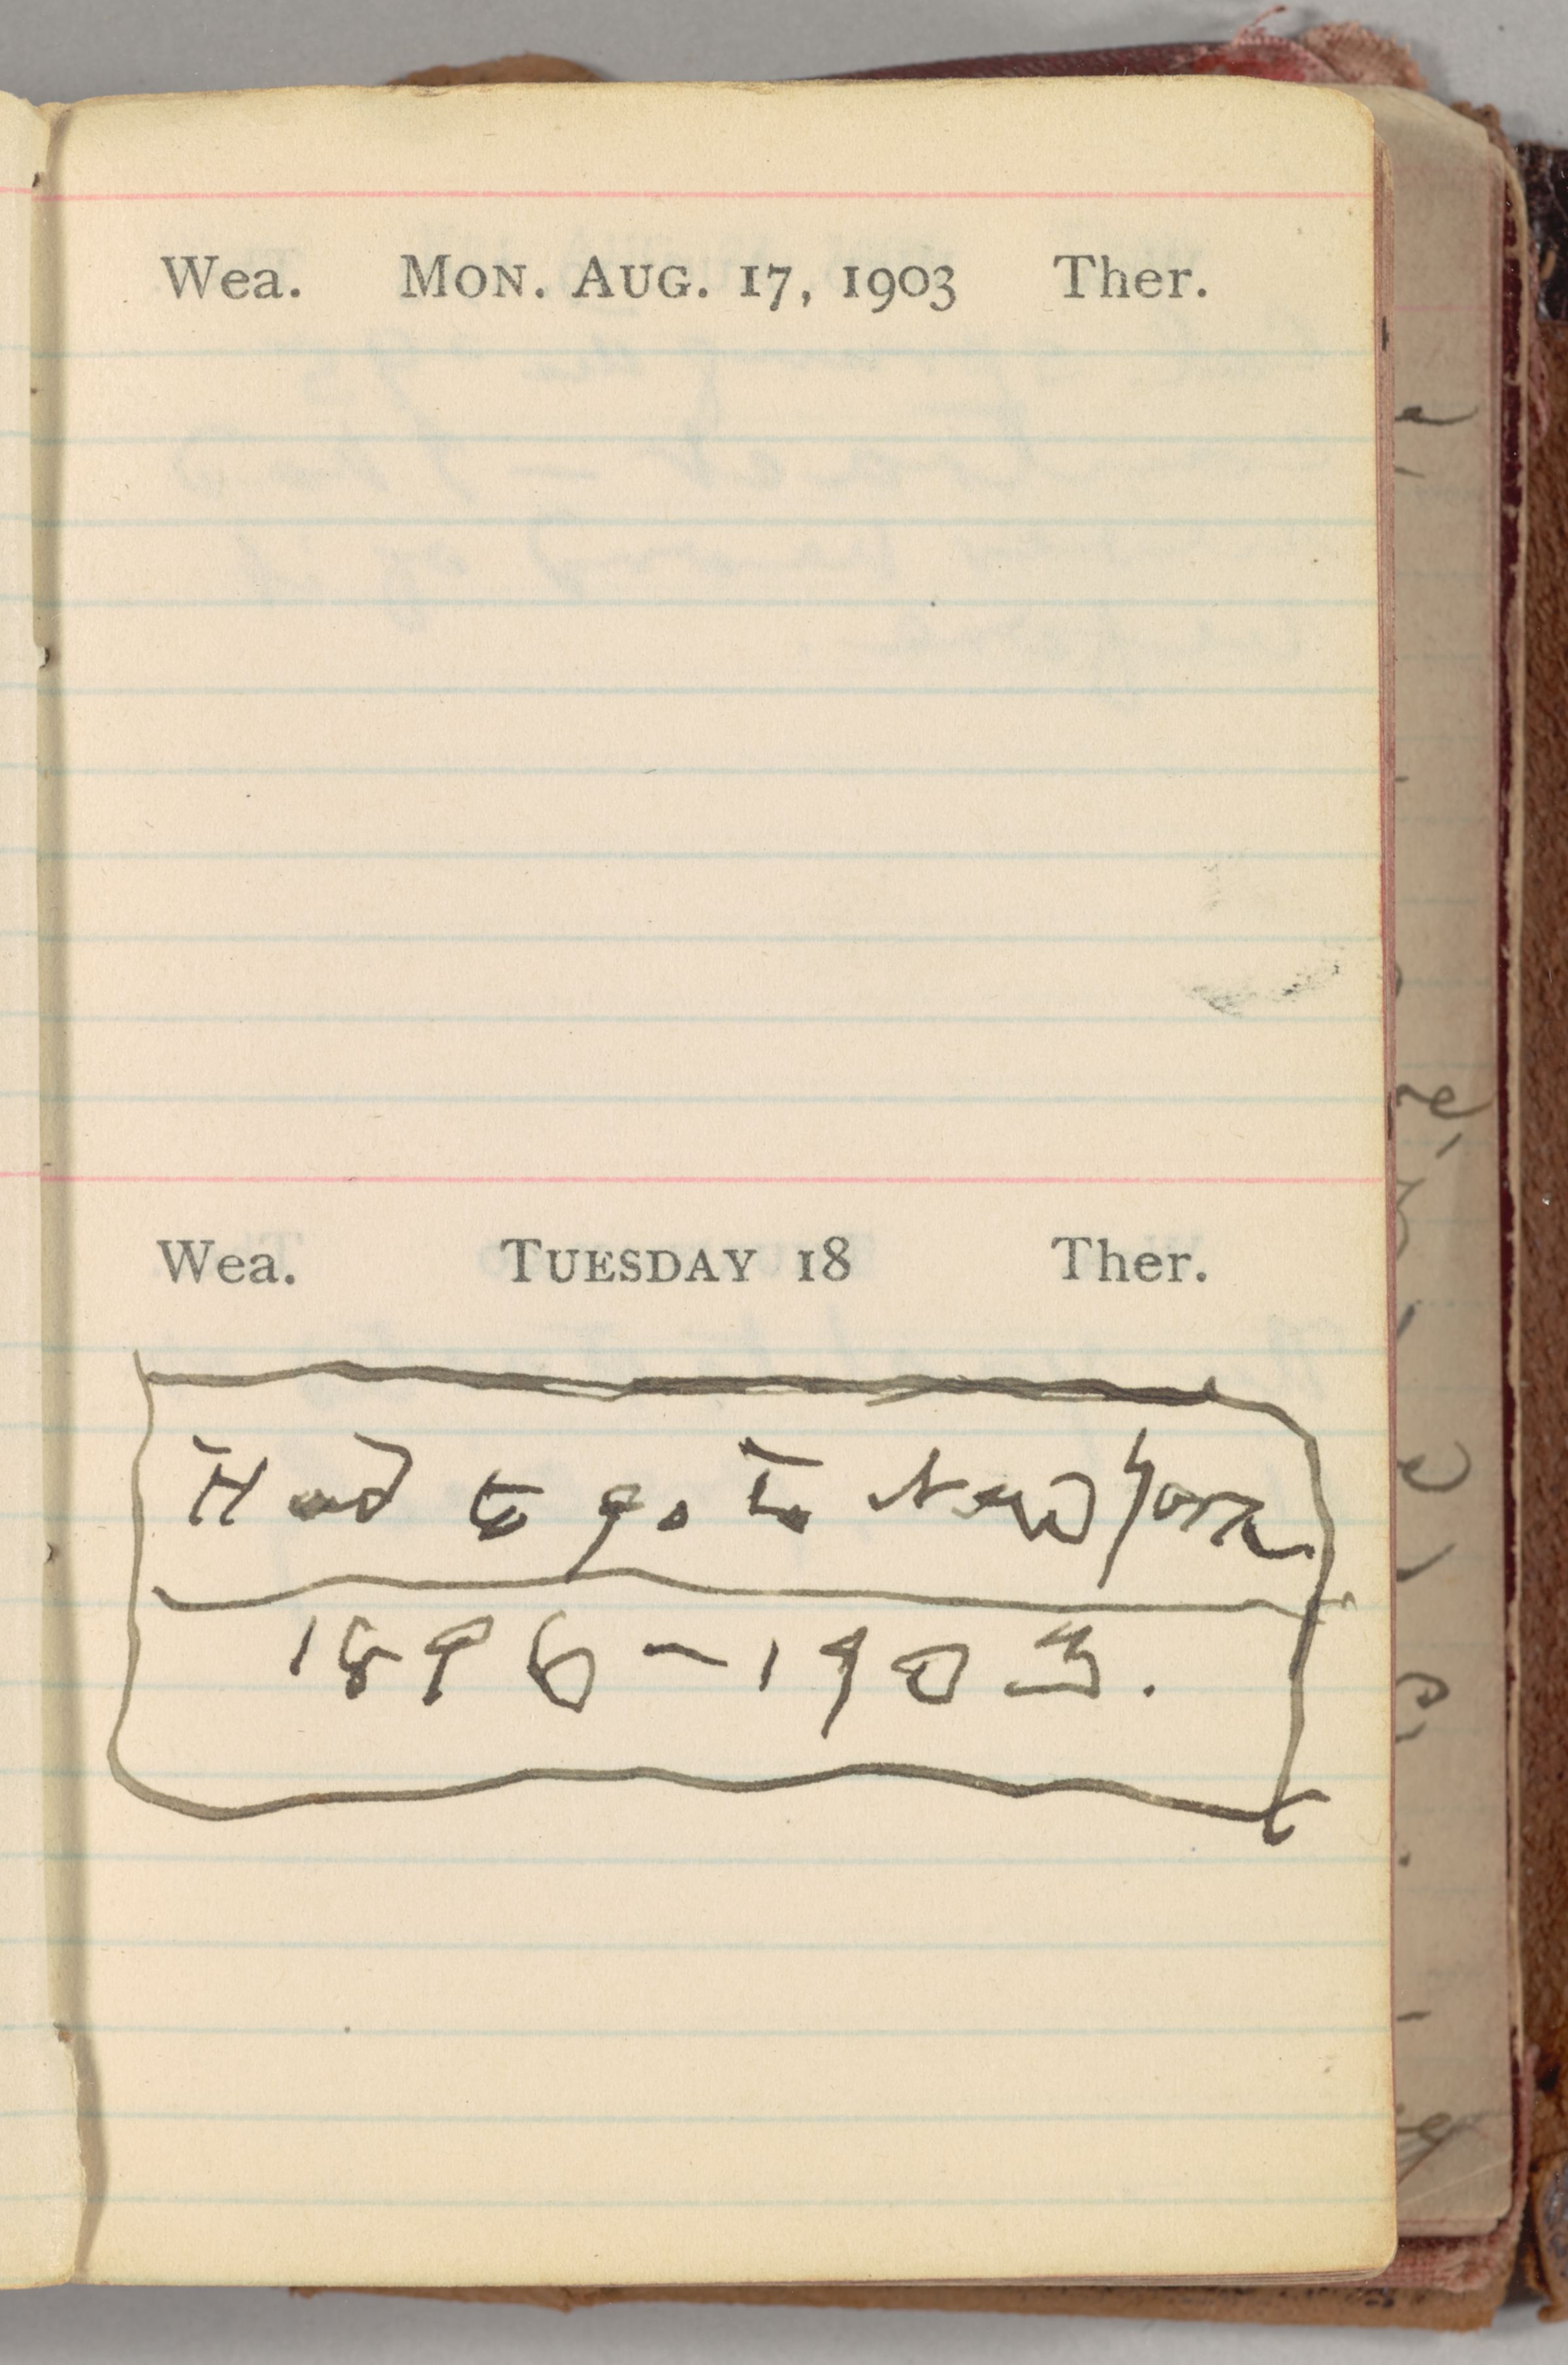 Wea. MON. AUG. 17, 1903 Ther.
Wea. TUESDAY 18 Ther.
Had to go to New York
1896-1903.